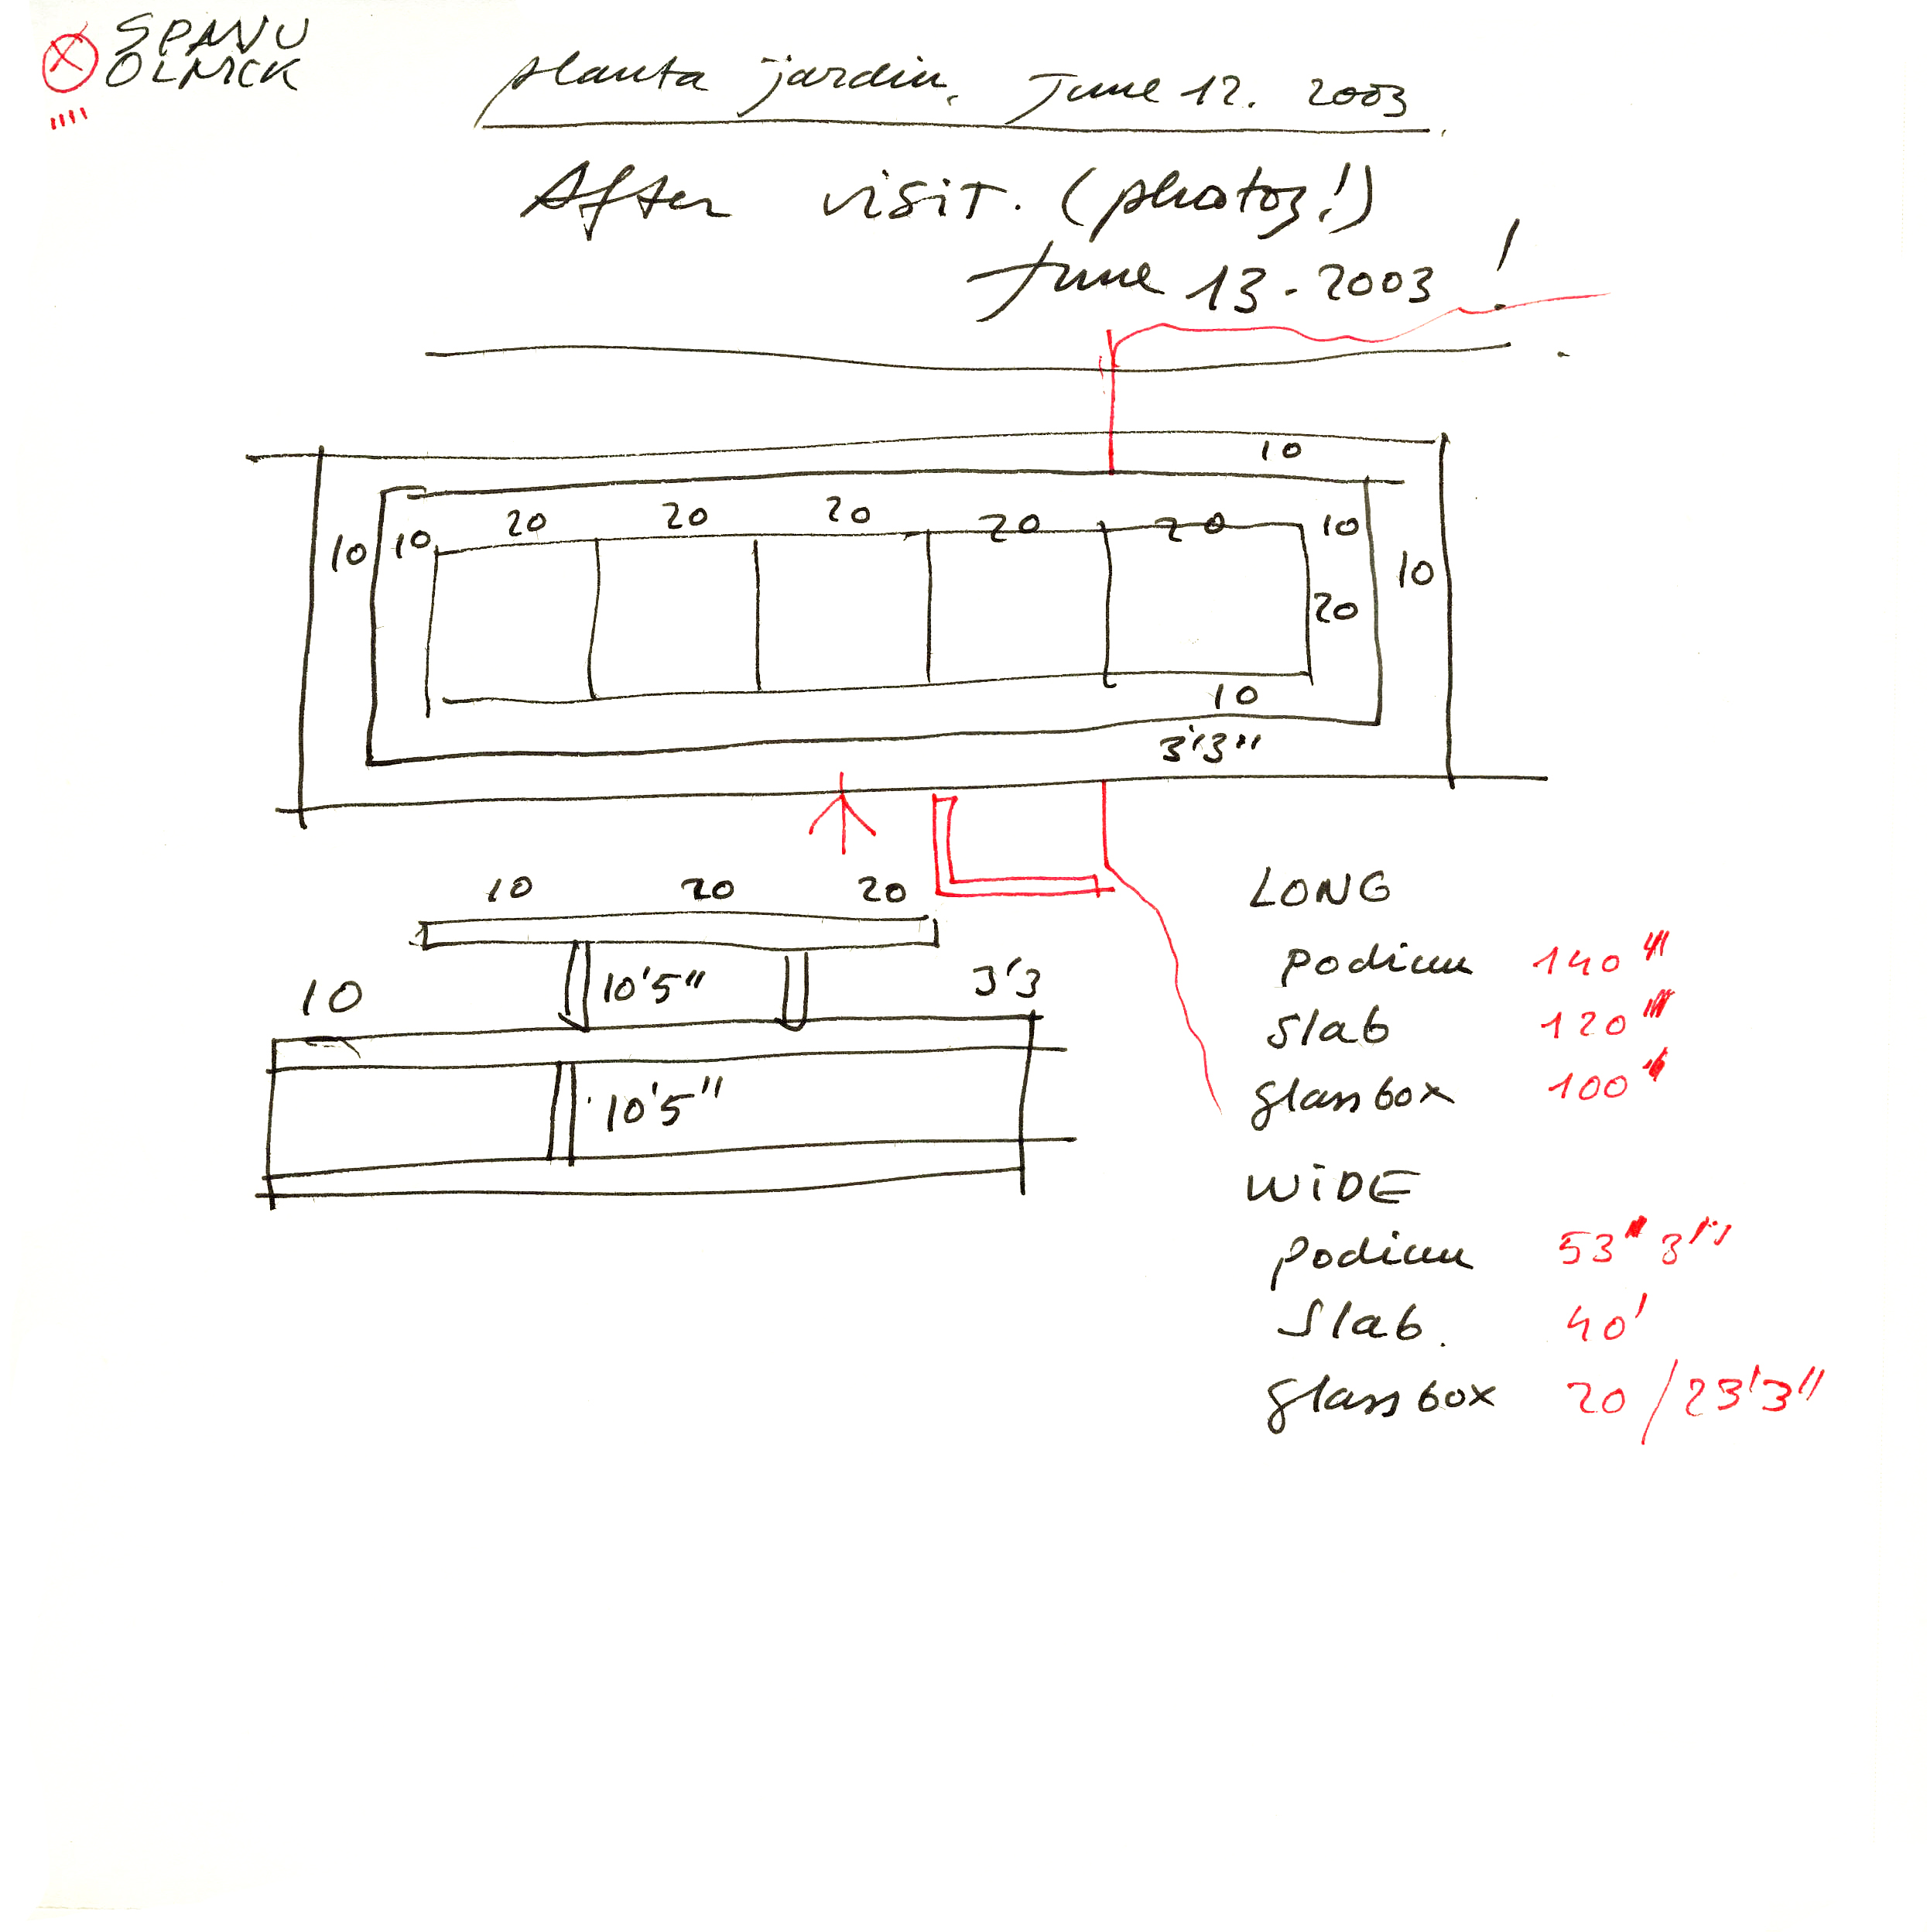 SPANU
OLNICK
planta jardin. June 12. 2003
After visit. (photos!)
June 13-2003!
10
20 20 20 20 20 10
10 10
10
20
10
3'3"
10 20 20
10 10'5" 3'3
10'5"
LONG
podium 140
slab 120
glassbox 100
WiDE
podium 53' 3"
Slab. 40'
glassbox 20/23'3"